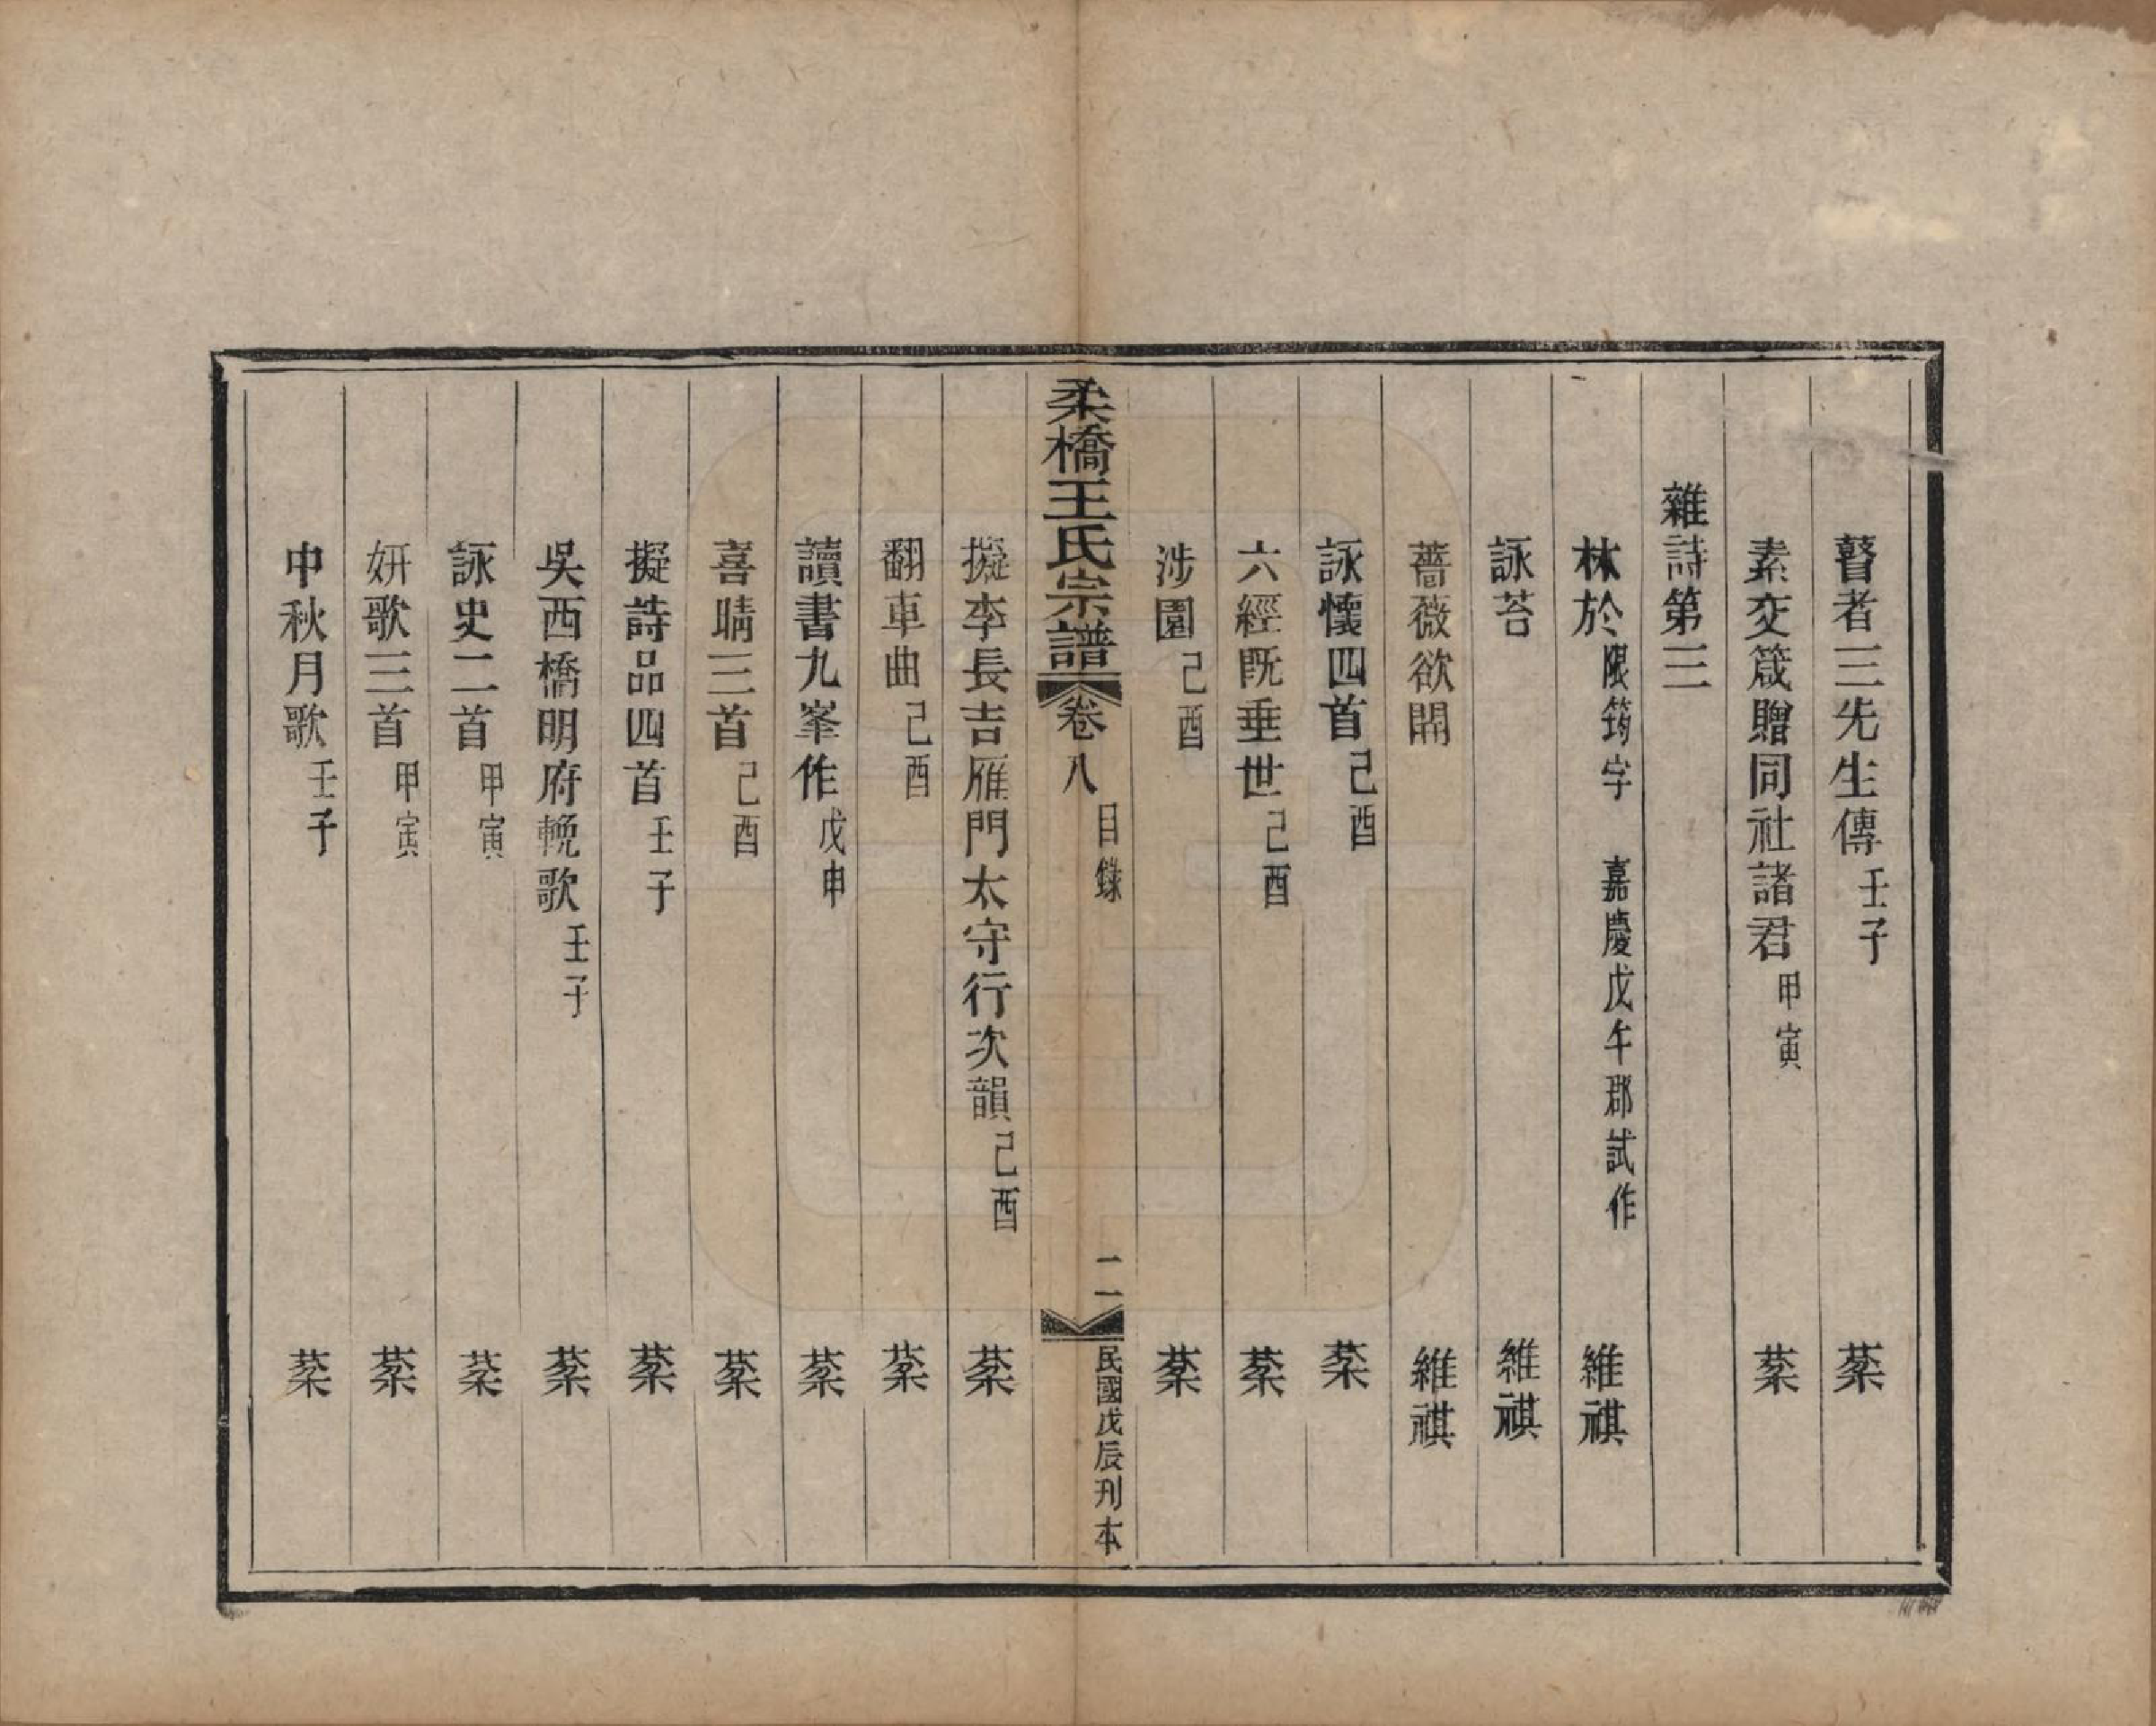 瞽者三先生傳 壬子 棻
素交箴贈同社諸君 甲寅 棻
雜詩第三
林於 限筠字 嘉慶戊午郡試作 維祺
詠苔 維祺
薔薇欲開 維祺
詠懷四首 己酉 棻
六經既垂世 己酉 棻
涉園 己酉 棻
柔橋王氏宗譜 卷八 目錄 二 民國戊辰刊本
擬李長吉雁門太守行次韻 己酉 棻
翻車曲 己酉 棻
讀書九峯作 戊申 棻
喜晴三首 己酉 棻
擬詩品四首 壬子 棻
吳西橋明府輓歌 壬子 棻
詠史二首 甲寅 棻
妍歌三首 甲寅 棻
中秋月歌 壬子 棻